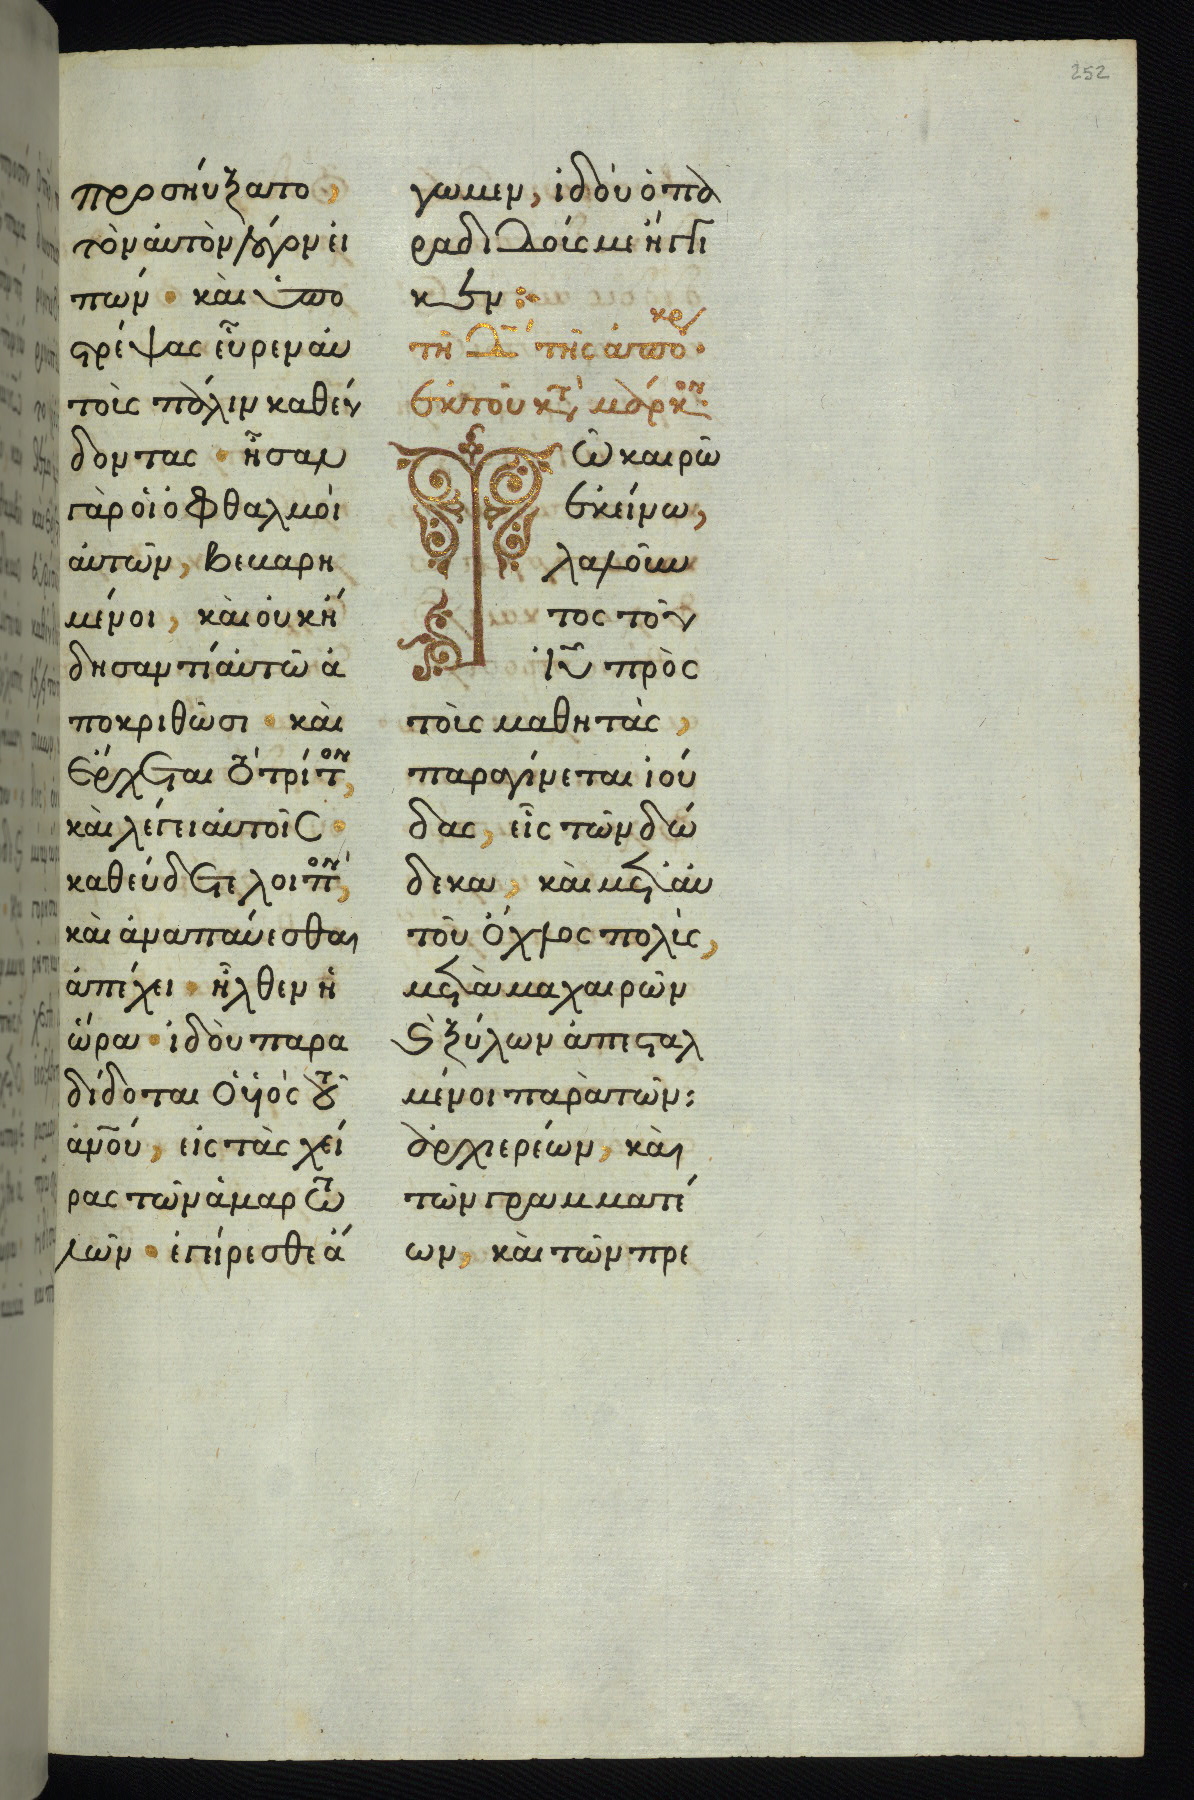 252
προσηύξατο,
τὸν αὐτὸν λόγον εἰ
πών · καὶ ὑπο
στρέψας εὗρεν αὐ
τοὺς πάλιν καθεύ
δοντας · ἦσαν
γὰρ οἱ ὀφθαλμοὶ
αὐτῶν, βεβαρη
μένοι, καὶ οὐκ ἤ
δησαν τί αὐτῶ ἀ
ποκριθῶσι · καὶ
ἔρχεται τὸ τρίτον,
καὶ λέγει αὐτοῖς ·
καθεύδετε λοιπὸν,
καὶ ἀναπαύεσθαι
ἀπέχει · ἦλθεν ἡ
ὥρα · ἰδοὺ παρα
δίδοται ὁ υἱὸς τοῦ
ἀνοῦ, εἰς τὰς χεῖ
ρας τῶν ἁμαρτω
λῶν · ἐγείρεσθε ἄ
γωμεν, ἰδοὺ ὁ πα
ραδιδούς με ἤγγι
κεν :·
τῆ δ τῆς ἀποκρ
ἐκ τοῦ κατὰ μάρκον
Τῶ καιρῶ
ἐκείνω,
λαλοῦν
τος τοῦ
ἰυ πρὸς
τοὺς μαθητὰς,
παραγίνεται ἰού
δας, εἷς τῶν δώ
δεκα, καὶ μετ' αὐ
τοῦ ὄχλος πολὺς,
μετὰ μαχαιρῶν
καὶ ξύλων ἀπεσταλ
μένοι παρὰ τῶν :
ἀρχιερέων, καὶ
τῶν γραμματέ
ων, καὶ τῶν πρε